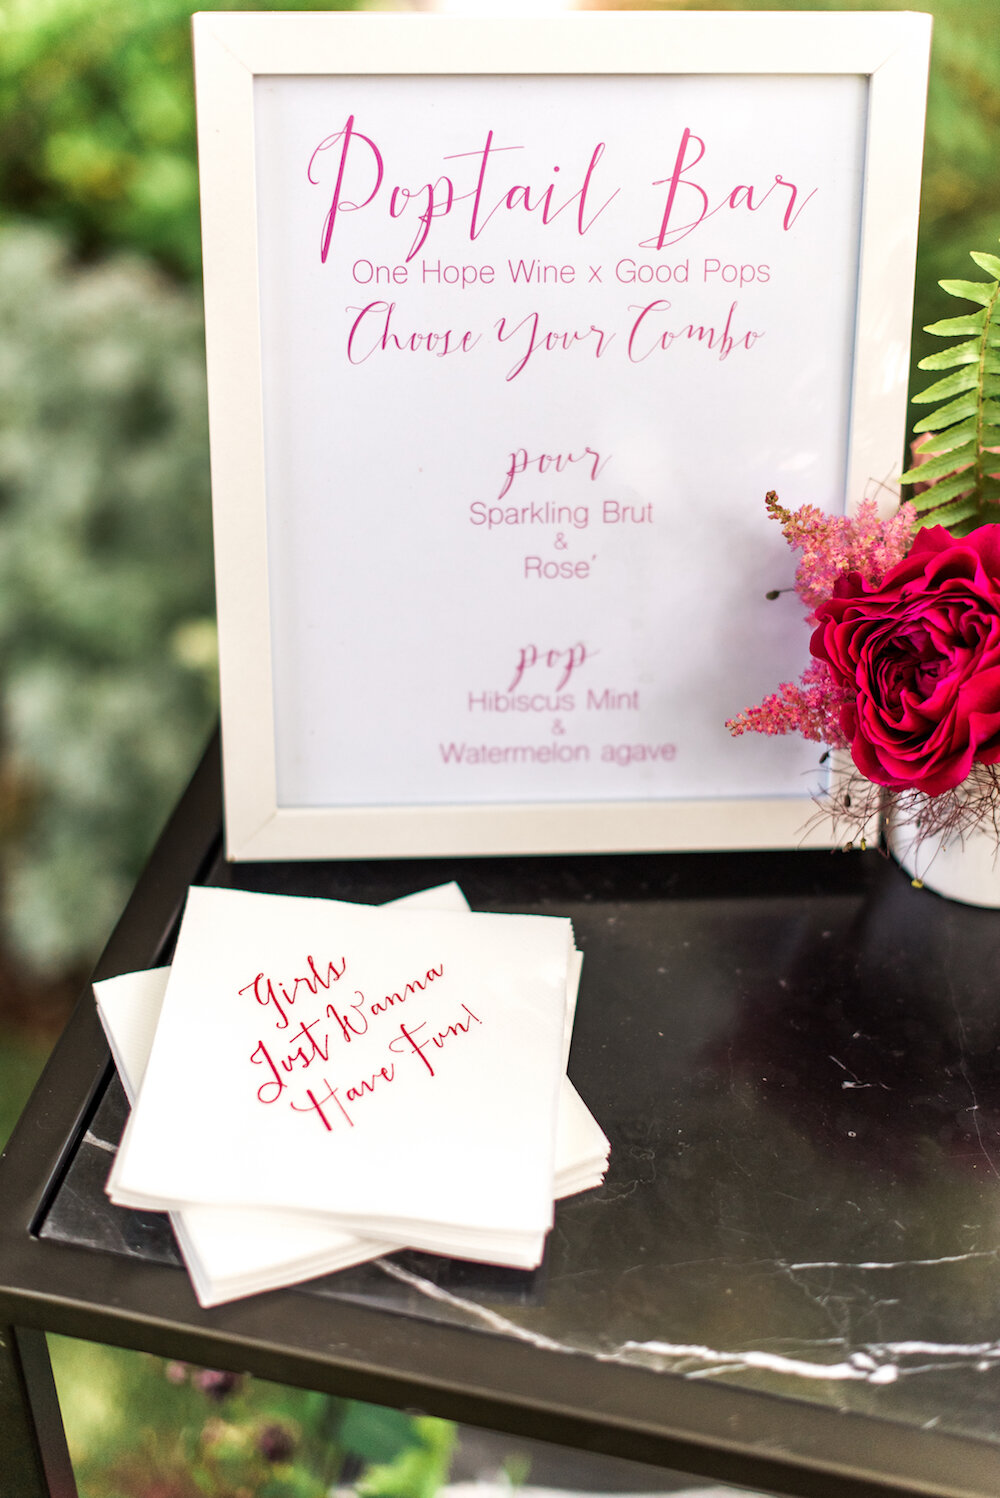 Poptail Bar
One Hope Wine x Good Pops
Choose Your Combo
pour
Sparkling Brut
&
Rose'
pop
Hibiscus Mint
&
Watermelon agave
Girls
Just Wanna
Have Fun!